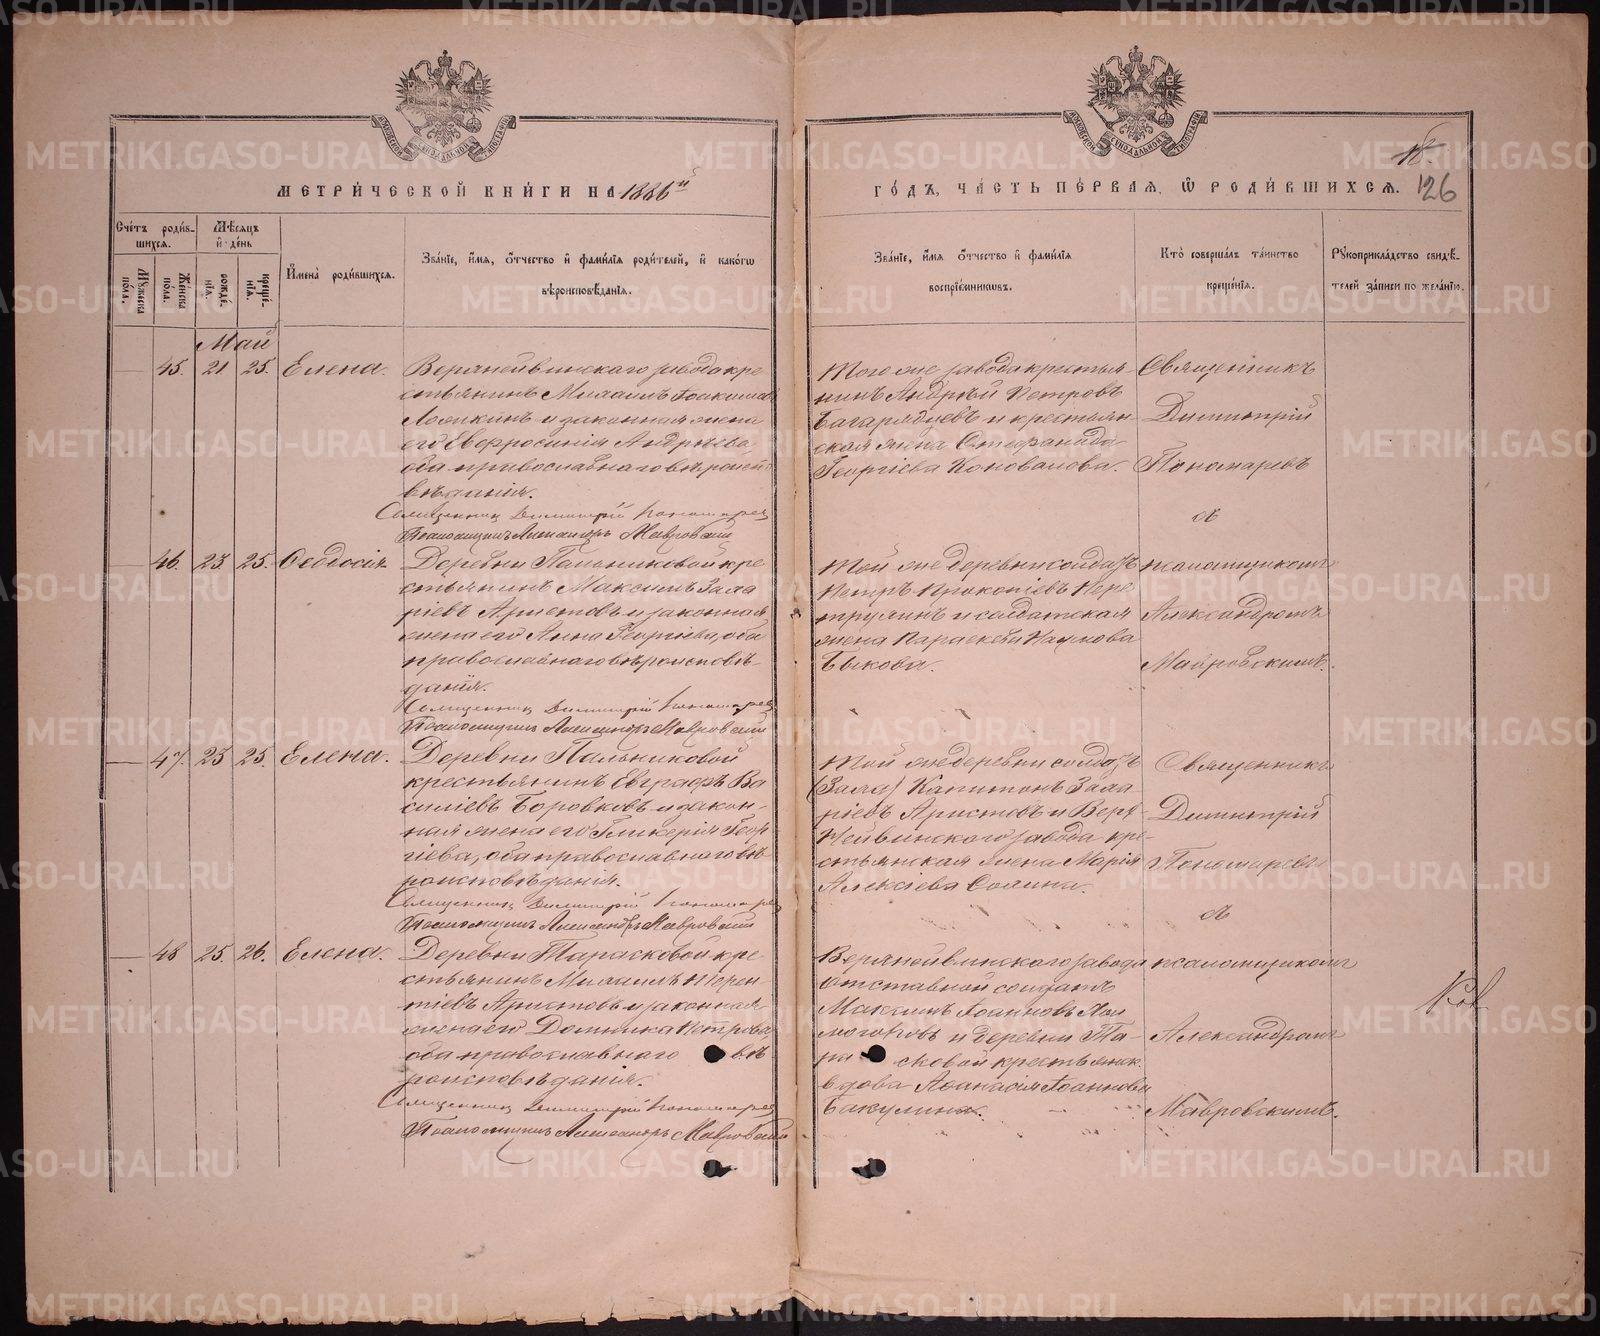 МЕТРИ́ЧЕСКОЙ КНИ́ГИ НА 1886й
ГО́ДЪ, ЧА́СТЬ ПЕ́РВАЯ, Ѡ РОДИ́ВШИХСЯ.
126
Сче́тъ роди́в-
шихся.
Мѣ́сяцъ
и҆ де́нь
Му́жеска
по́ла.
Же́нска
по́ла.
рожде́-
нїя.
креще́-
нїя.
И҆мена̀ роди́вшихся.
Зва́нїе, и҆́мя, ѻ҆́тчество и҆ фами́лїя роди́телей, и҆ како́гѡ
вѣроисповѣ́данїя.
Зва́нїе, и҆́мя, ѻ҆́тчество и҆ фами́лїя
воспрїе́мниковъ.
Кто̀ соверша́лъ та́инство
креще́нїя.
Рꙋкоприкла́дство свидѣ́-
телей за́писи по жела́нїю.
Май
45. 21. 25. Елена.
Верхнейвинскаго завода кре
стьянинъ Михаилъ Іоакимовъ
и законная жена
его Евфросинія Андреева,
оба православнаго вѣроиспо
вѣданія.
Священникъ Димитрій Пономаревъ
Псаломщикъ Александръ Мавровскій
Того же завода крестья-
нинъ Андрей Петровъ
Багарядцевъ и крестьян
ская жена Стефанида
Георгіева Коновалова.
Священникъ
Димитрій
Пономаревъ
съ
46. 23 25. Ѳеодосія
Деревни Пальниковой кре
стьянинъ Максимъ Заха
ріевъ Аристовъ и законная
жена его Анна Георгіева, оба
православнаго вѣроисповѣ-
данія.
Священникъ Димитрій Пономаревъ
Псаломщикъ Александръ Мавровскій
Той же деревни солдатъ
Петръ Прокопіевъ Пере
тружинъ и солдатская
жена Параскева Наумова
Быкова.
псаломщикомъ
Александромъ
Мавровскимъ.
47. 23 25. Елена.
Деревни Пальниковой
крестьянинъ Евграфъ Ва
силіевъ Боровковъ и закон-
ная жена его Гликерія Геор-
гіева, оба православнаго вѣ
роисповѣданія.
Священникъ Димитрій Пономаревъ
Псаломщикъ Александръ Мавровскій
Той же деревни солдатъ
Капитонъ Заха
ріевъ Аристовъ и Верх
Нейвинскаго завода кре-
стьянская жена Марія
Алексіева
Священникъ
Димитрій
Пономаревъ
съ
48 25. 26. Елена.
Деревни Тарасковой кре-
стьянинъ Михаилъ Терен
тіевъ Аристовъ и законная
жена его Домника Петрова,
оба православнаго вѣ-
роисповѣданія.
Священникъ Димитрій Пономаревъ
Псаломщикъ Александръ Мавровскій
Верхнейвинскаго завода
отставной солдатъ
Максимъ Іоанновъ Кол
могоровъ и деревни Та-
расковой крестьянск.
вдова Аѳанасія Іоаннова
Бакулина.
псаломщикомъ
Александромъ
Мавровскимъ.
METRIKI.GASO-URAL.RU